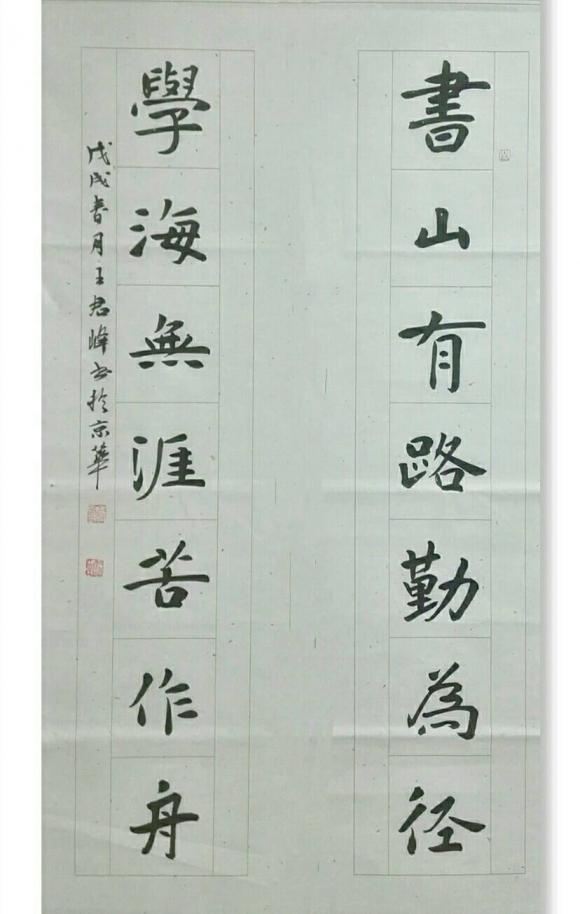 書山有路勤為径
學海無涯苦作舟
戊戌春月王君峰书於京華